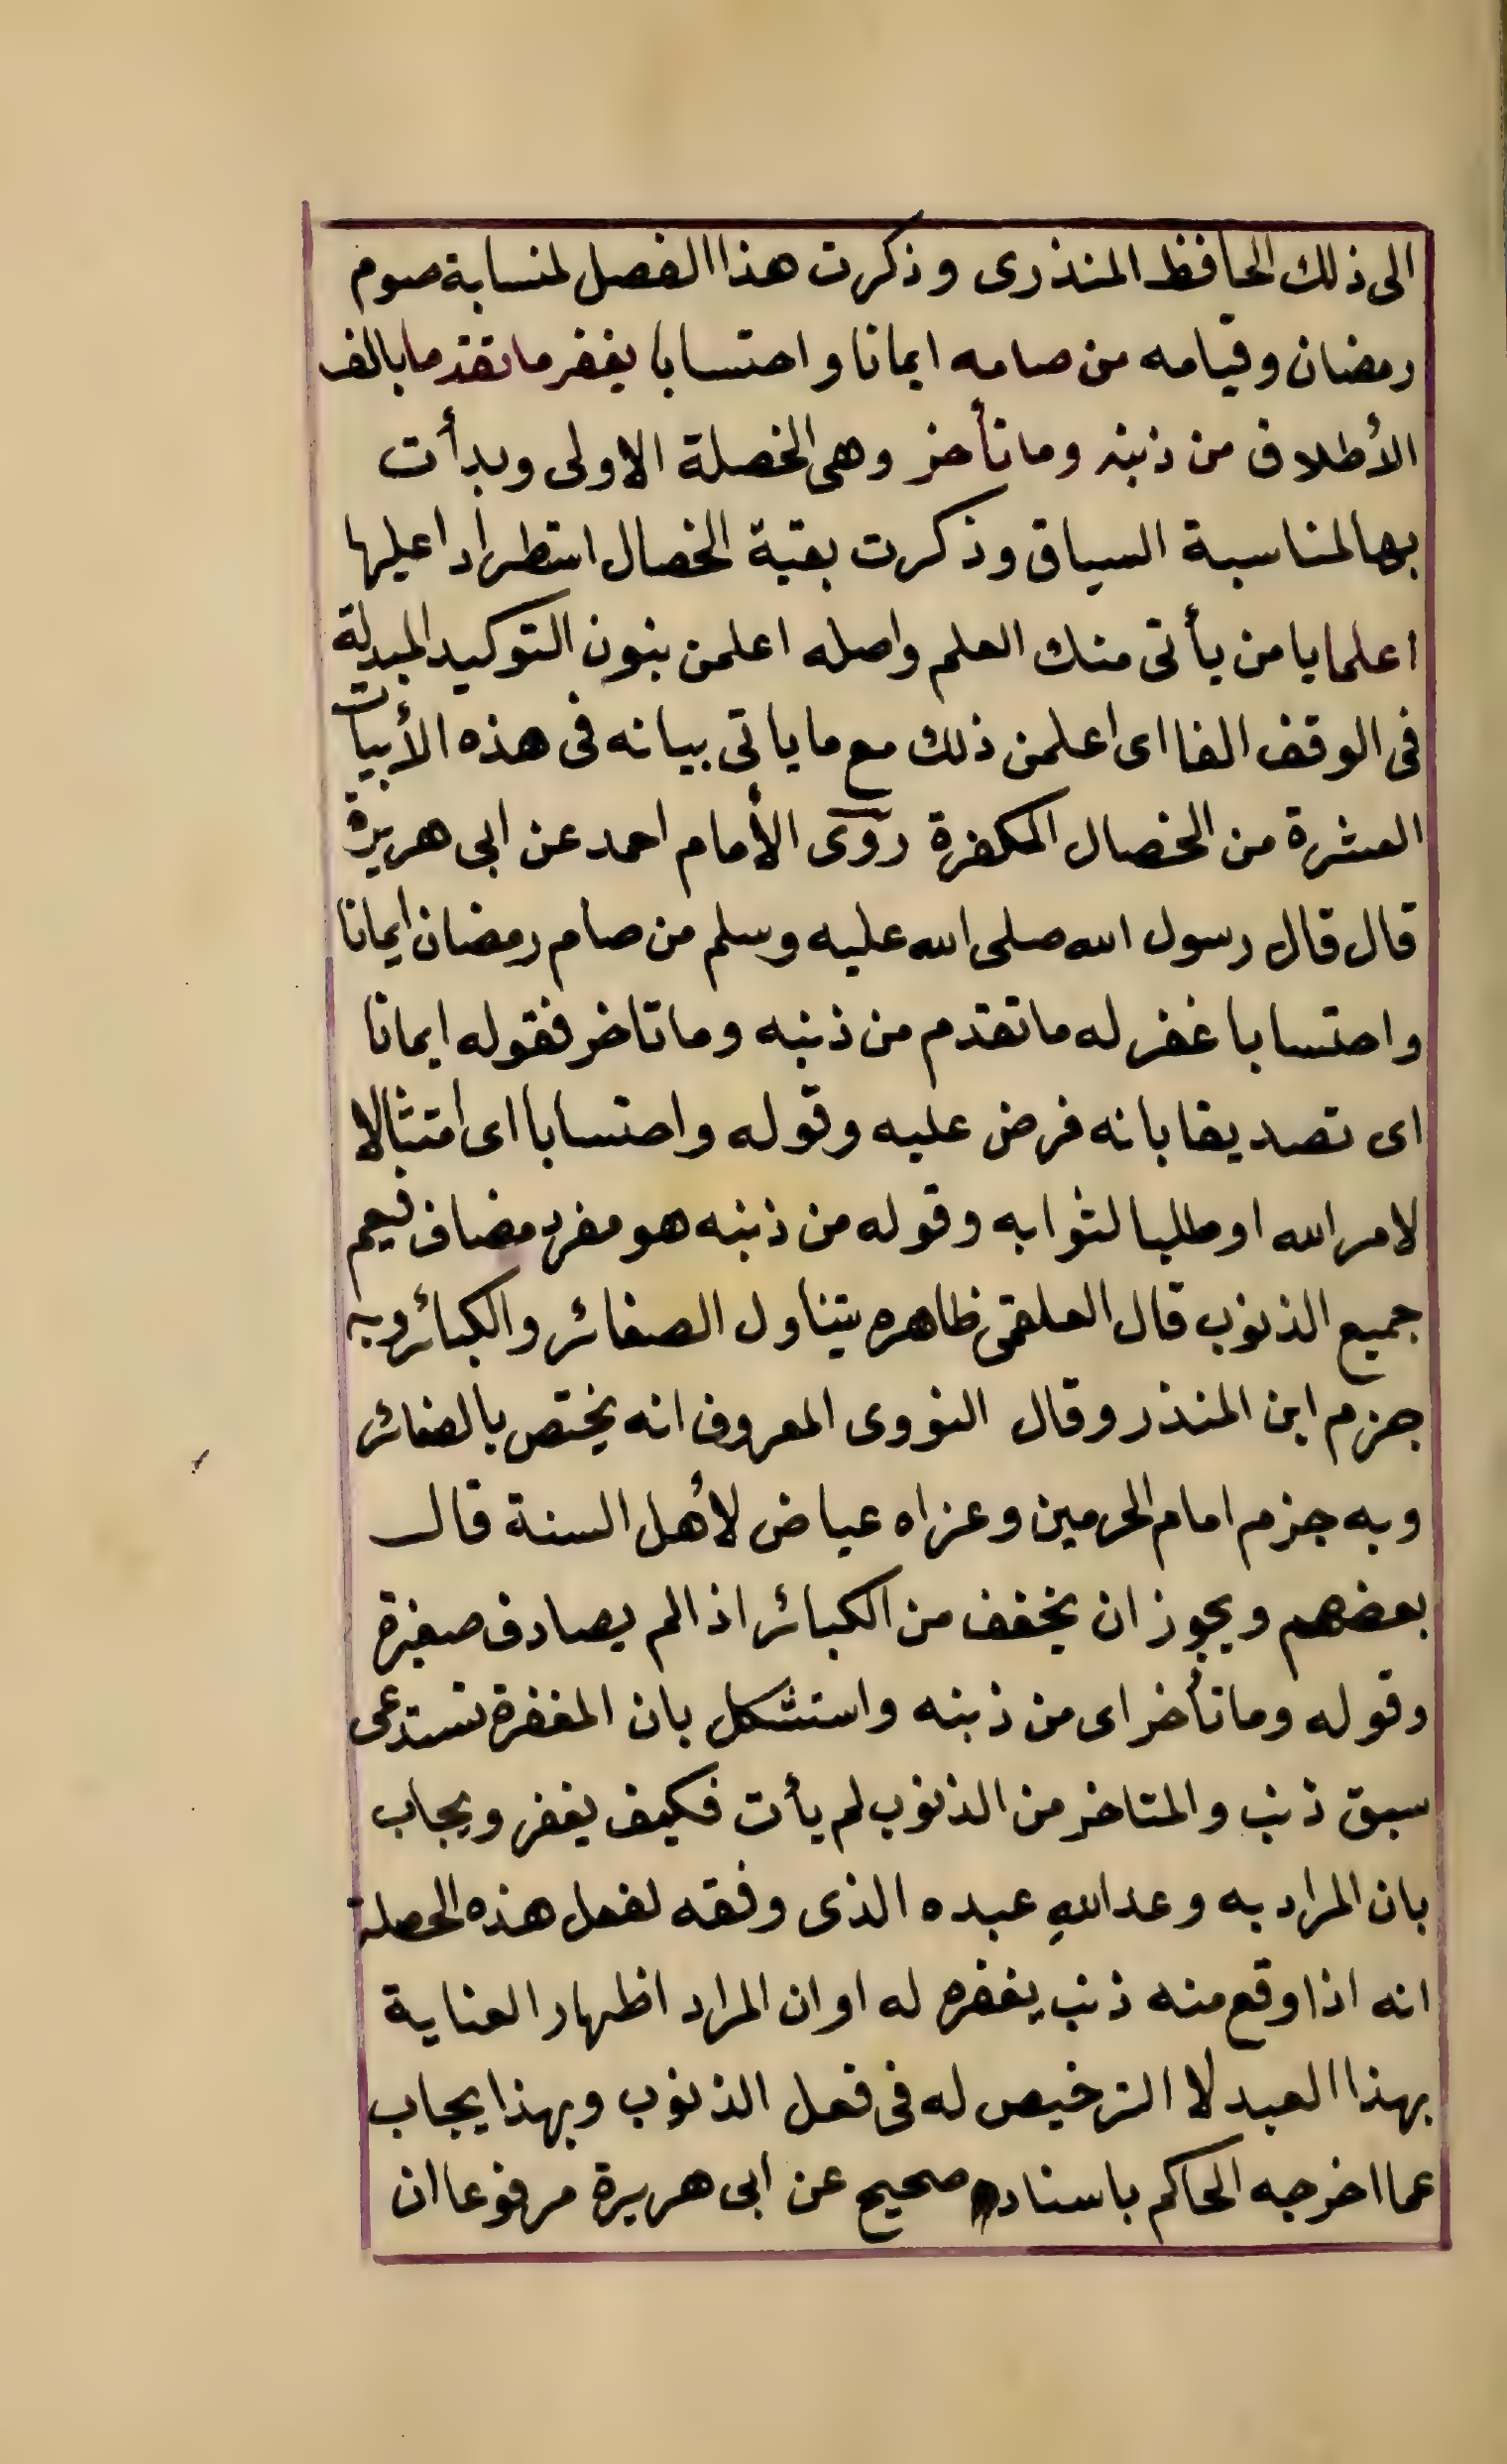 الى ذلك الحافظ المنذرى وذكرت هذا الفصل لمنسابة صوم
رمضان وقيامه من صامه ايمانا واحتسابا يغفر ما تقدما بالف
الأطلاق من ذنبه وما تأخر وهى الخصلة الاولى وبدأت
بها لمناسبة السياق وذكرت بقية الخصال استطرادا عليها
اعلما يا من يأتى منك العلم واصله اعلمن بنون التوكيد المبدلة
فى الوقف الفا اى اعلمن ذلك مع ما ياتى بيانه فى هذه الأبيات
العشرة من الخصال المكفرة روى الأمام احمد عن ابى هريرة
قال قال رسول الله صلى الله عليه وسلم من صام رمضان ايمانا
واحتسابا غفر له ما تقدم من ذنبه وما تاخر فقوله ايمانا
اى تصديقا بانه فرض عليه وقوله واحتسابا اى امتثالا
لامر الله او طلبا لثوابه وقوله من ذنبه هو مفرد مضاف فيعم
جميع الذنوب قال العلقمى ظاهره يتناول الصغائر والكبائر وبه
جزم ابن المنذر وقال النووى المعروف انه يختص بالصغائر
وبه جزم امام الحرمين وعزاه عياض لأهل السنة قال
بعضهم ويجوز ان يخفف من الكبائر اذا لم يصادف صغيرة
وقوله وما تأخر اى من ذنبه واستشكل بان المغفرة تستدعى
سبق ذنب والمتاخر من الذنوب لم يأت فكيف يغفر ويجاب
بان المراد به وعد الله عبده الذى وفقه لفعل هذه الخصلة
انه اذا وقع منه ذنب يغفره له او ان المراد اظهار العناية
بهذا العبد لا الترخيص له فى فعل الذنوب وبهذا يجاب
عما اخرجه الحاكم باسناد صحيح عن ابى هريرة مرفوعا ان